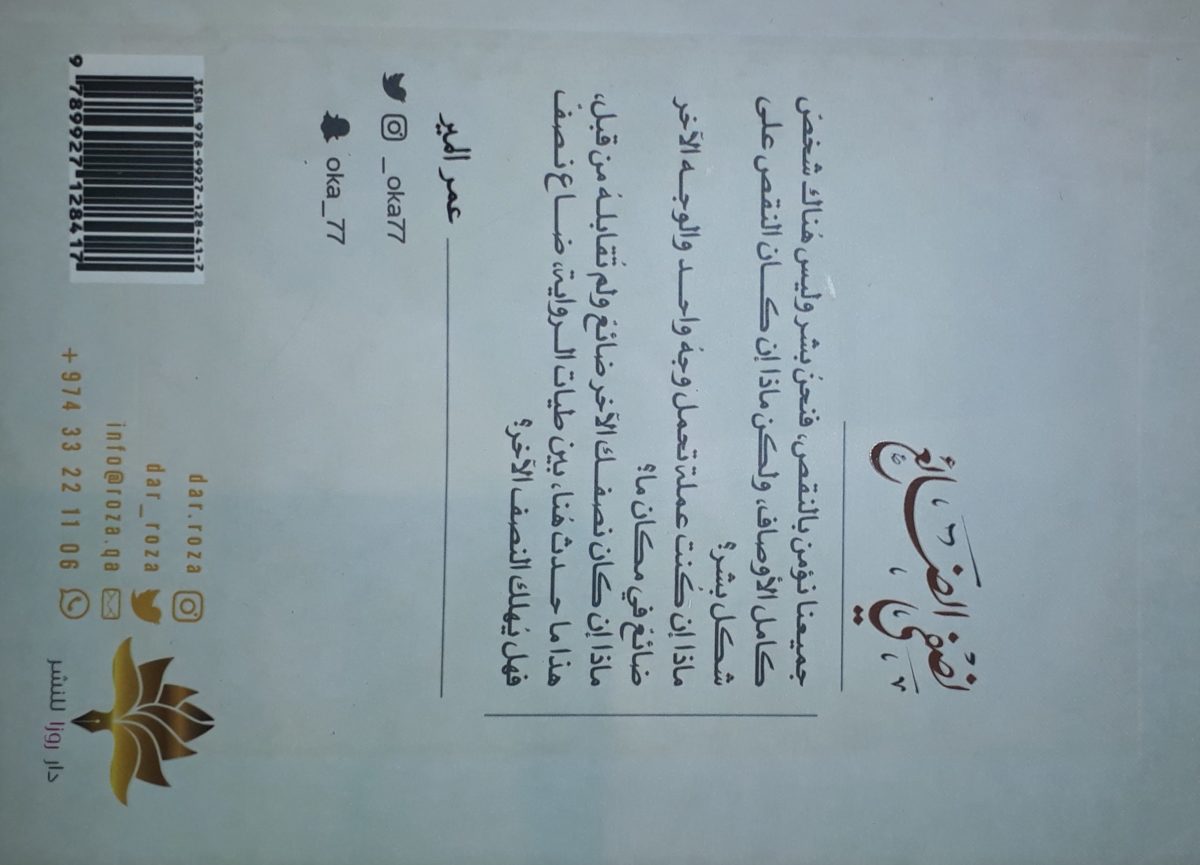 نصفي الضائع
جميعنا نؤمن بالنقص، فنحنُ بشر وليس هُناك شخصٌ
كامل الأوصاف، ولكن ماذا إن كـــان النقص على
شكل بشر؟
ماذا إن كُنت عملة تحمل وجهُ واحـد والوجـه الآخر
ضائعٌ في مكان ما؟
ماذا إن كان نصفـك الآخر ضائعٌ ولم تُقابلهُ من قبل،
هذا ما حـدث هُنا، بين طيات الـرواية، ضـاع نـصف
فهل يُهلك النصف الآخر؟
عمر المير
_oka77
oka_77
ISBN 978-9927-128-41-7
9 789927 128417
dar.roza
dar_roza
info@roza.qa
+974 33 22 11 06
دار روزا للنشر